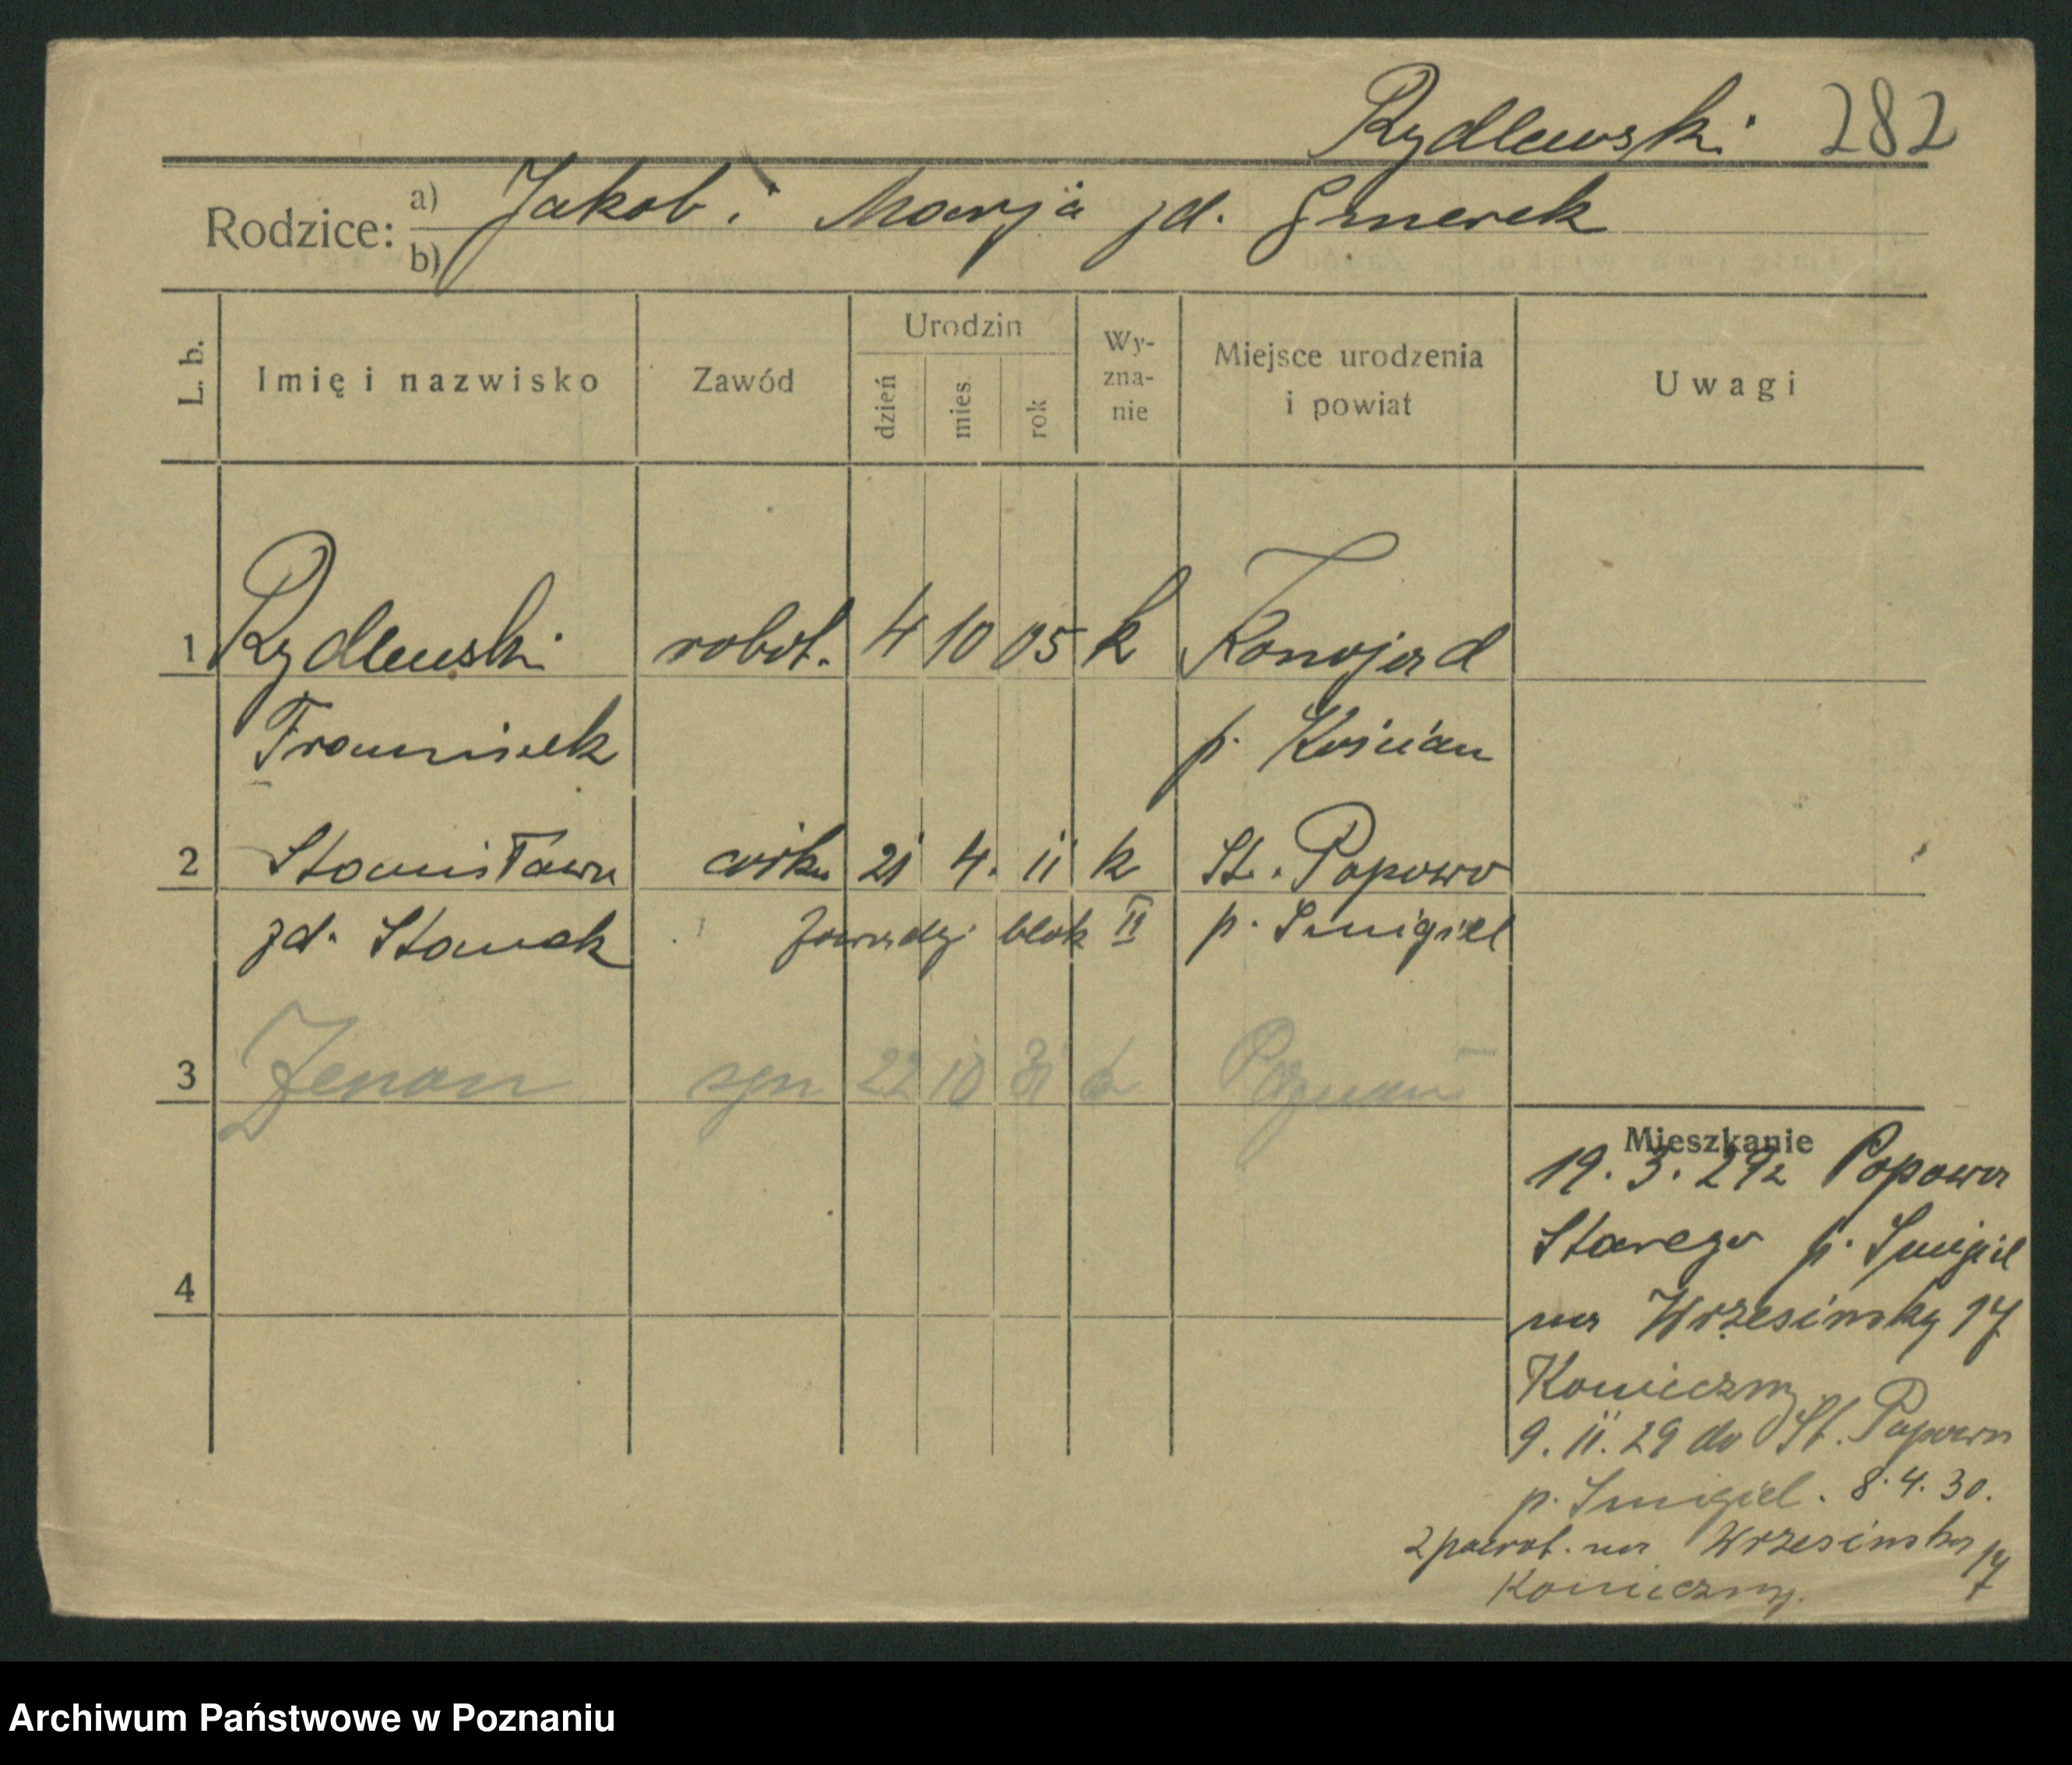 Rydlewski 282
Rodzice: a) Jakob i Marja zd. Gmerek
b)
L. b. Imię i nazwisko Zawód Urodzin dzień mies. rok Wy-zna-nie Miejsce urodzenia i powiat Uwagi
1 Rydlewski robot. 4 10 05 k Konojad
Franciszek p. Kościan
2 Stanisława córka 21 4. 11 k St. Popowo
zd. Stanek blok II p. Smigiel
3 Zenon syn 22 10 31 k Poznań
Mieszkanie
19. 3. 29 z Popowa
Starego p. Smigiel
na Wrzesińską 17
Konieczny
9. 11. 29 do St. Popowa
p. Smigiel. 8. 4. 30.
z powrot. na Wrzesińska 17
Konieczny.
4
Archiwum Państwowe w Poznaniu